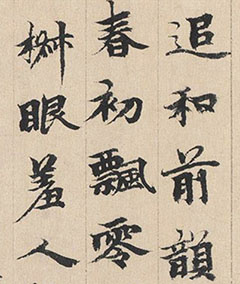 追和前韻
春初飄零
柳眼羞人